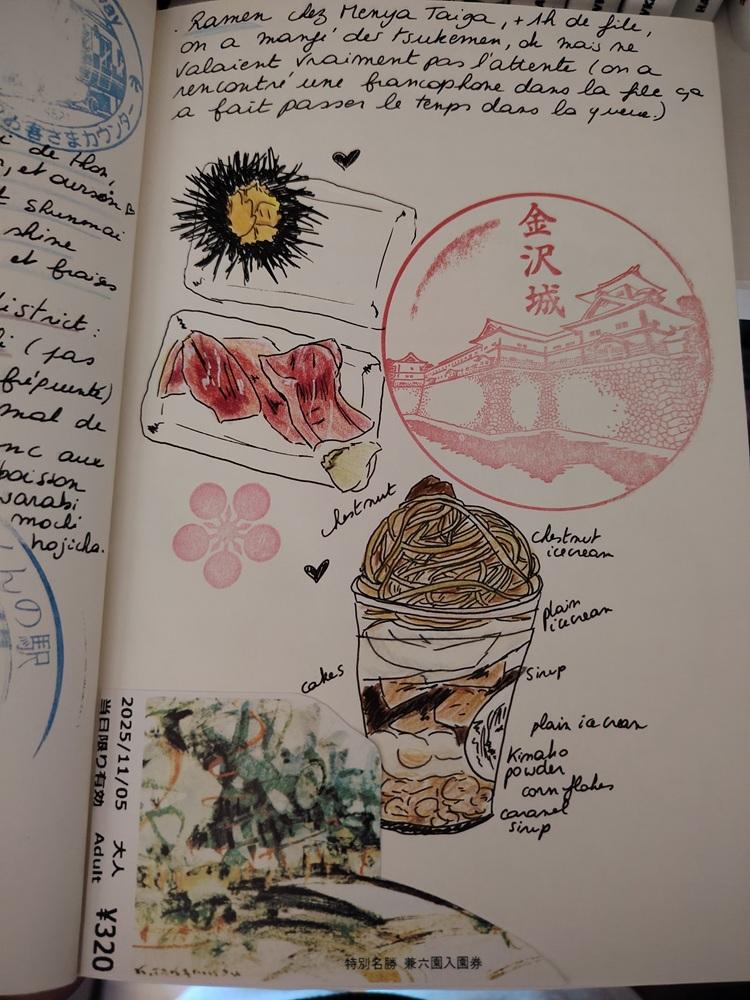 . Ramen chez Menya Taiga, + 1h de file,
on a mangé des tsukemen, ok mais ne
valaient vraiment pas l'attente (on a
rencontré une francophone dans la file ça
a fait passer le temps dans la queue.)
金沢城
chestnut
chestnut
icecream
plain
icecream
cakes
sirup
plain ice cream
Kinako
powder
corn flakes
caramel
sirup
2025/11/05 大人 Adult ¥320
当日限り有効
特別名勝 兼六園入園券
way
さまカウンター
de thon,
et oursin
shunmai
shine
et fraises
district :
(pas
fréquenté)
mal de
nc aux
boisson
warabi
mochi
hojicha.
んの駅